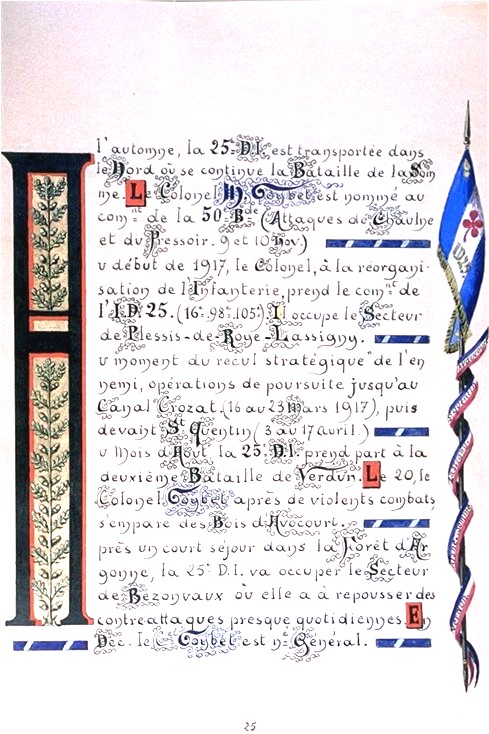 A l'automne, la 25e D.I. est transportée dans
le Nord où se continue la Bataille de la Som
me. Le Colonel M. Toybet est nommé au
comnt de la 50e Bde (Attaques de Chaulne
et du Pressoir. 9 et 10 Nov.)
u début de 1917, le Colonel, à la réorgani-
sation de l'Infanterie, prend le comnt de
l'I.D. 25. (16e. 98e. 105e) Il occupe le Secteur
de Plessis-de-Roye-Lassigny.
u moment du recul stratégique" de l'en
nemi, opérations de poursuite jusqu'au
Canal Crozat. (16 au 23 Mars 1917), puis
devant St Quentin (3 au 17 Avril.)
u Mois d'Août, la 25e D.I. prend part à la
deuxième Bataille de Verdun. Le 20, le
Colonel Toybet après de violents combats,
s'empare des Bois d'Avocourt.
près un court séjour dans la Forêt d'Ar
gonne, la 25e D.I. va occuper le Secteur
de Bezonvaux où elle a à repousser des
contre attaques presque quotidiennes. En
Déc. le Cel Toybet est né Général.
25